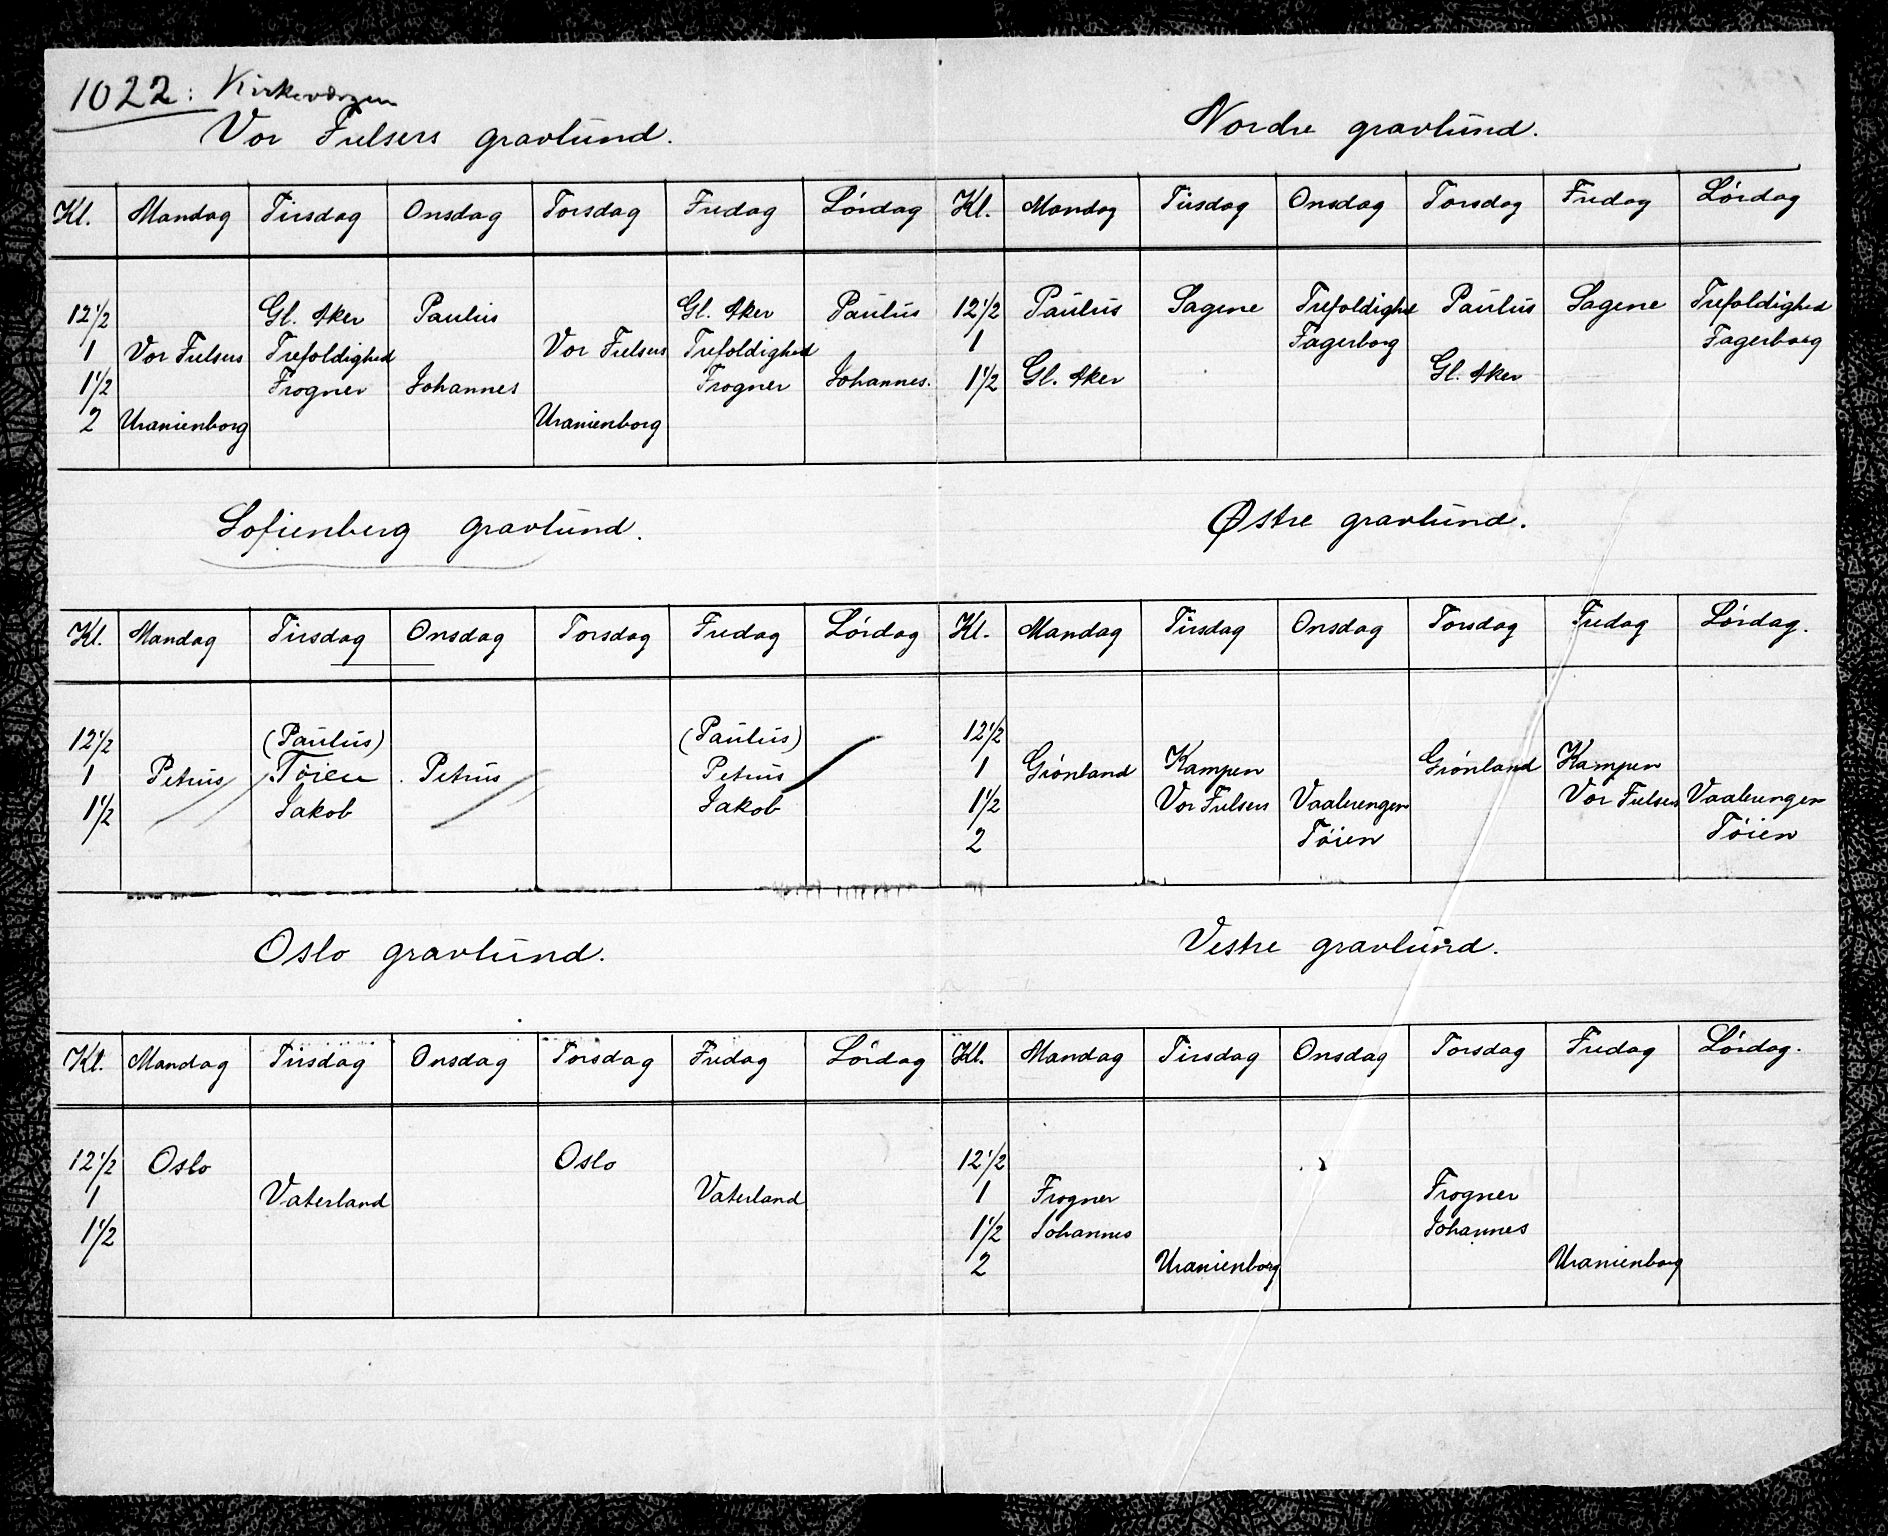 1022: Kirkevergen
Vor Frelsers gravlund.
Kl. Mandag Tirsdag Onsdag Torsdag Fredag Lördag
12 1/2 Gl. Aker Paulus Gl. Aker Paulus
1 Vor Frelsers Trefoldighed Vor Frelsers Trefoldighed
1 1/2 Frogner Johannes Frogner Johannes.
2 Uranienborg Uranienborg
Nordre gravlund.
Kl. Mandag Tirsdag Onsdag Torsdag Fredag Lördag
12 1/2 Paulus Sagene Trefoldighd Paulus Sagene Trefoldighed
1 Fagerborg Fagerborg
1 1/2 Gl. Aker Gl. Aker
Sofienberg gravlund.
Kl. Mandag Tirsdag Onsdag Torsdag Fredag Lördag
12 1/2 (Paulus) (Paulus)
1 Petrus Tøien Petrus Petrus
1 1/2 Jakob Jakob
Østre gravlund.
Kl. Mandag Tirsdag Onsdag Torsdag Fredag Lördag.
12 1/2
1 Grönland Kampen Grönland Kampen
1 1/2 Vor Frelsers Vaalerengen Vor Frelsers Vaalerengen
2 Tøien Tøien
Oslo gravlund.
Kl. Mandag Tirsdag Onsdag Torsdag Fredag Lördag
12 1/2 Oslo Oslo
1 Vaterland Vaterland
1 1/2
Vestre gravlund.
Kl. Mandag Tirsdag Onsdag Torsdag Fredag Lördag.
12 1/2
1 Frogner Frogner
1 1/2 Johannes Johannes
2 Uranienborg Uranienborg